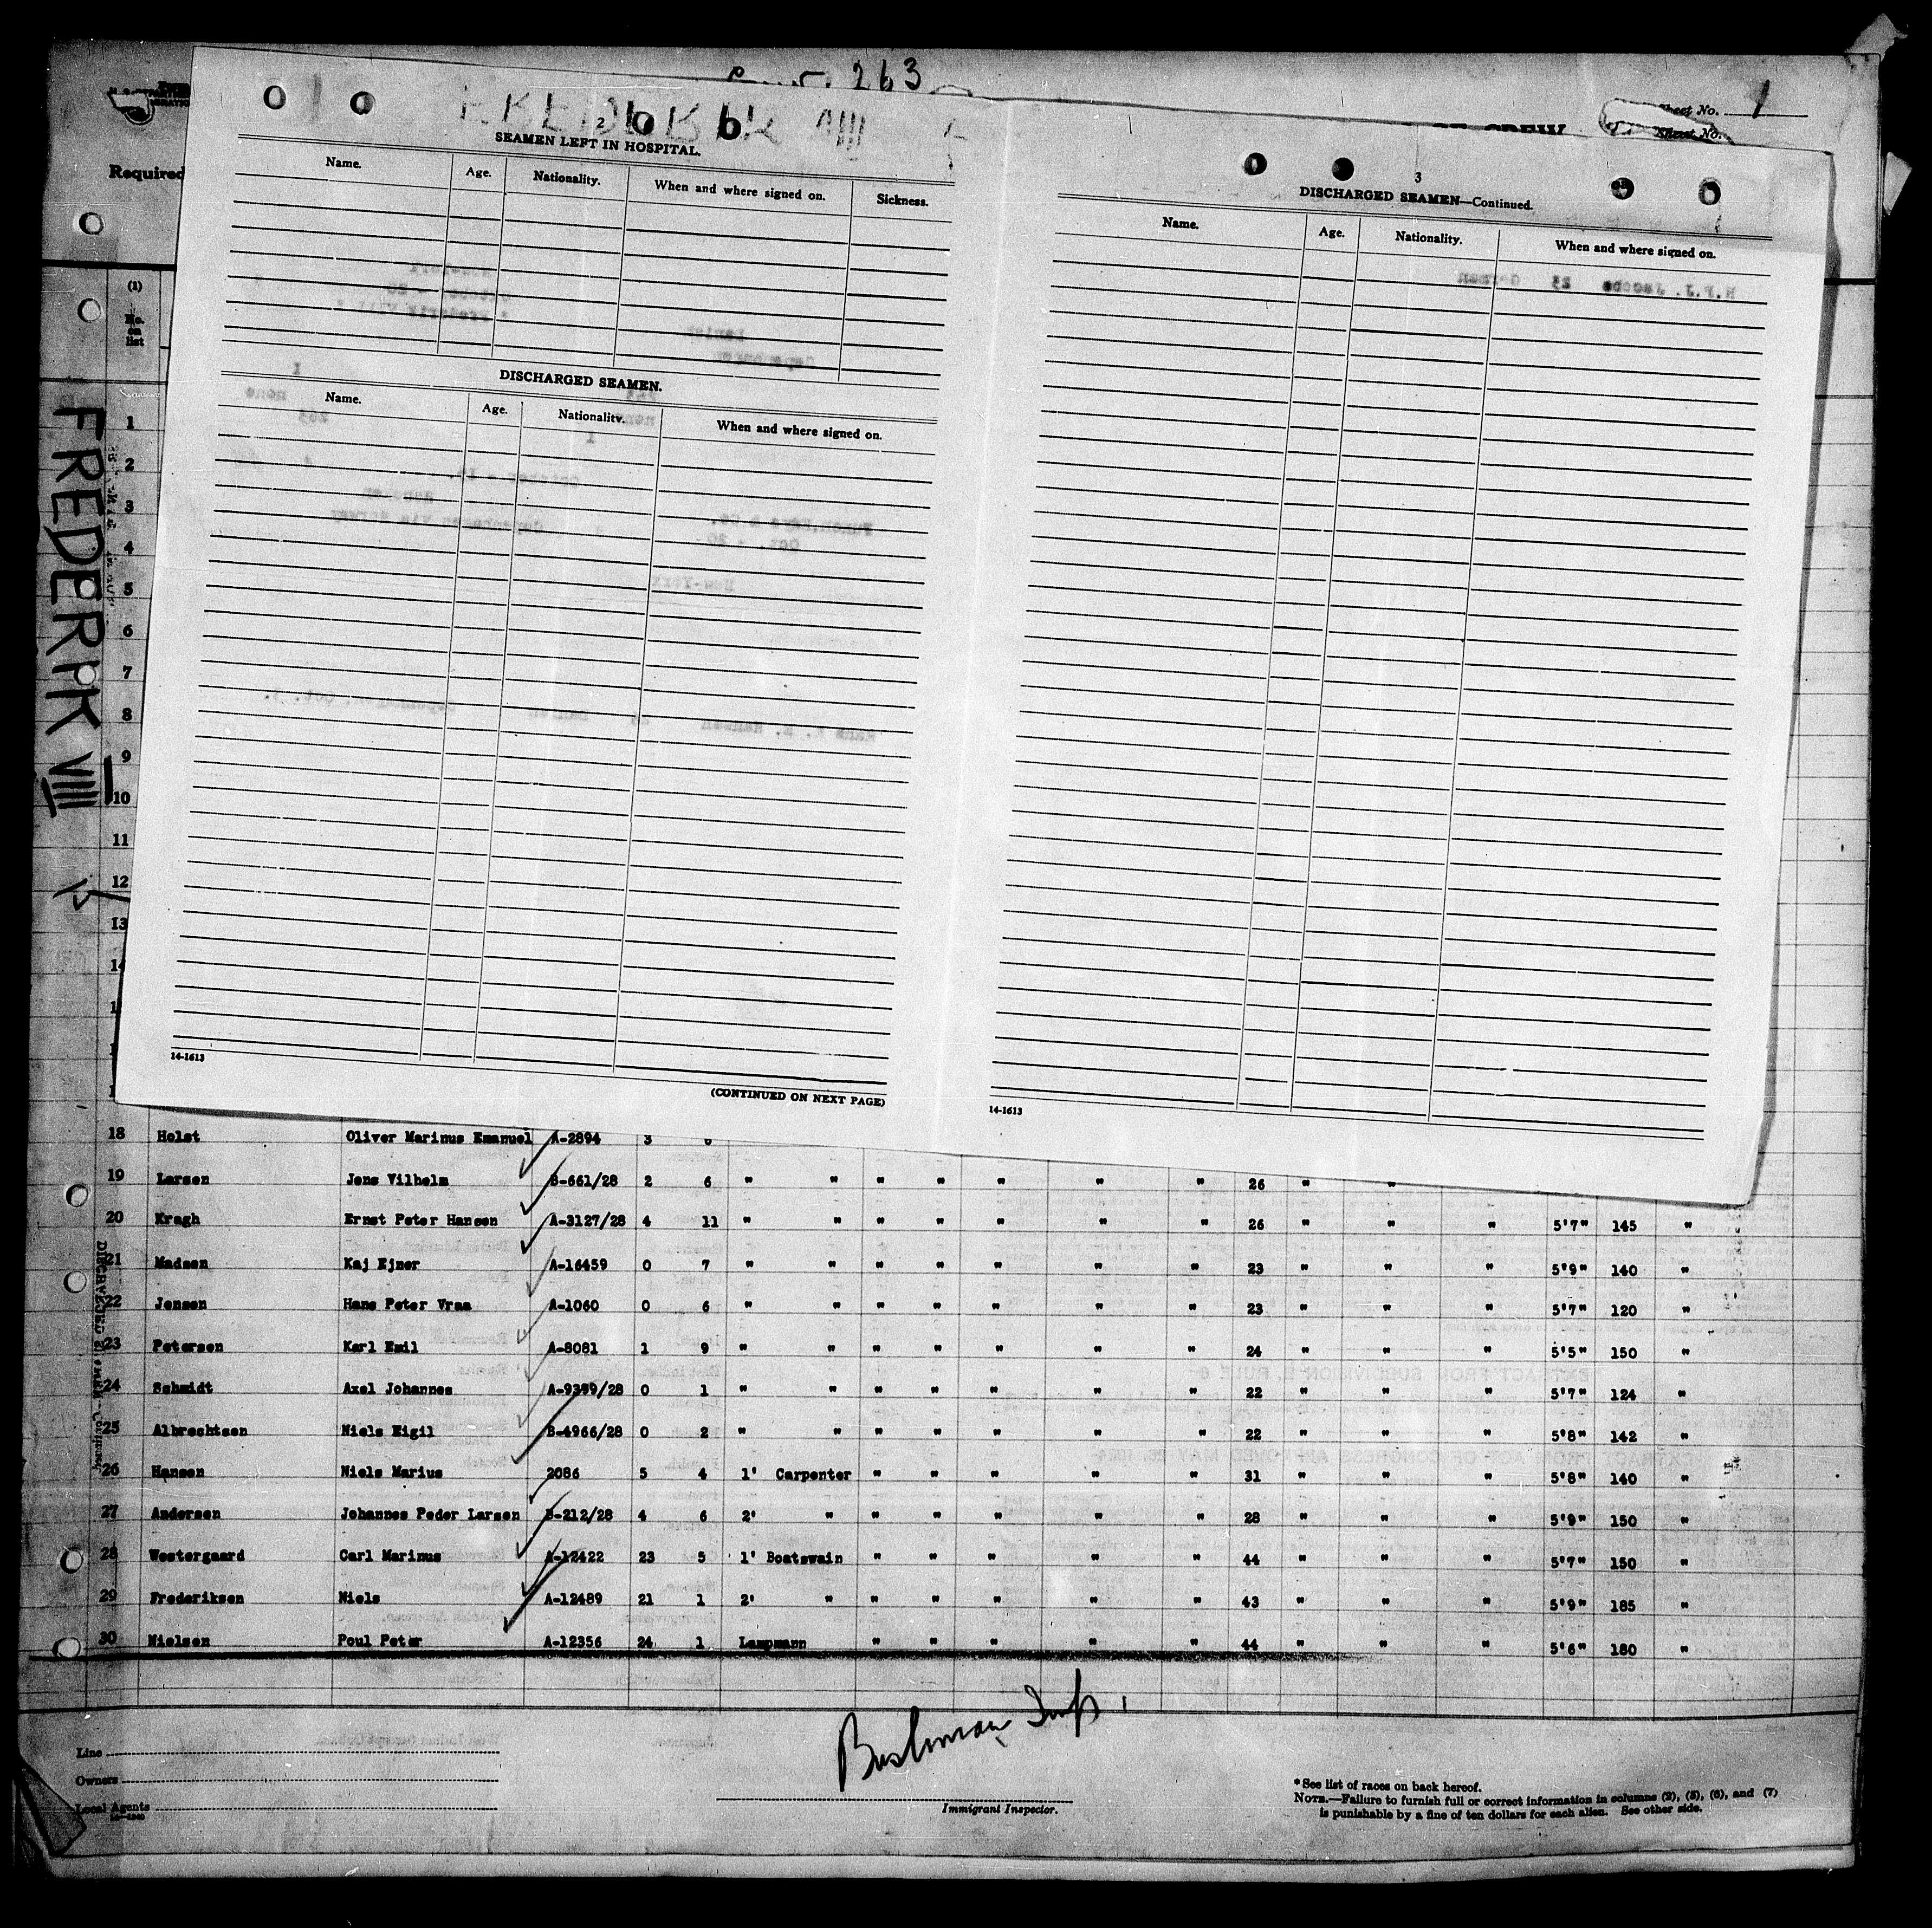 263
Sheet No. 1
Sheet No.
Required
2
SEAMEN LEFT IN HOSPITAL.
Name. Age. Nationality. When and where signed on. Sickness.
DISCHARGED SEAMEN.
Name. Age. Nationality. When and where signed on.
14-1613
(CONTINUED ON NEXT PAGE)
3
DISCHARGED SEAMEN—Continued.
Name. Age. Nationality. When and where signed on.
14-1613
(1)
No. on list
FREDERIK VIII
1
2
3
4
5
6
7
8
9
10
11
12
13
18 Holst Oliver Marinus Emanuel A-2894 3
19 Larsen Jens Vilhelm B-661/28 2 6 " " " " " " " 26 " "
20 Kragh Ernst Peter Hansen A-3127/28 4 11 " " " " " " " 26 " " " 5'7" 145 "
21 Madsen Kaj Ejner A-16459 0 7 " " " " " " " 23 " " " 5'9" 140 "
22 Jensen Hans Peter Vraa A-1060 0 6 " " " " " " " 23 " " " 5'7" 120 "
23 Petersen Karl Emil A-8081 1 9 " " " " " " " 24 " " " 5'5" 150 "
24 Schmidt Axel Johannes A-9399/28 0 1 " " " " " " " 22 " " " 5'7" 124 "
25 Albrechtsen Niels Eigil B-4966/28 0 2 " " " " " " " 22 " " " 5'8" 142 "
26 Hansen Niels Marius 2086 5 4 1' Carpenter " " " " " 31 " " " 5'8" 140 "
27 Andersen Johannes Peder Larsen B-212/28 4 6 2' " " " " " " 28 " " " 5'9" 150 "
28 Westergaard Carl Marinus A-12422 23 5 1' Boatswain " " " " " 44 " " " 5'7" 150 "
29 Frederiksen Niels A-12489 21 1 2' " " " " " " 43 " " " 5'9" 185 "
30 Nielsen Poul Peter A-12356 24 1 Lampmann " " " " " 44 " " " 5'6" 180 "
Line
Owners
Local Agents
Immigrant Inspector.
*See list of races on back hereof.
NOTE.—Failure to furnish full or correct information in columns (2), (5), (6), and (7)
is punishable by a fine of ten dollars for each alien. See other side.